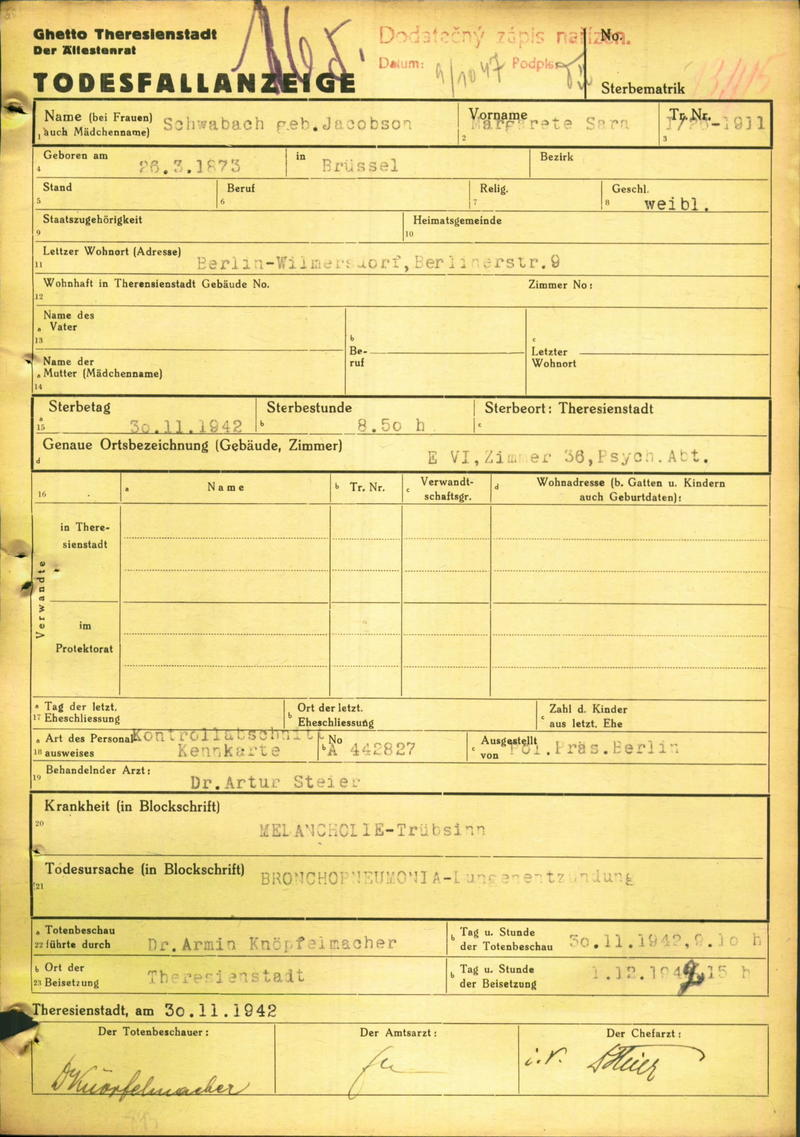 Ghetto Theresienstadt
Der Ältestenrat
TODESFALLANZEIGE
Dodatečný zápis nařízen.
Datum: Podpis:
No.
Sterbematrik
Name (bei Frauen) auch Mädchenname) Schwabach geb.Jacobson
1
Vorname Margarete Sara
2
Tr. Nr. -1911
3
Geboren am 26.3.1873
4
in Brüssel
Bezirk
Stand
5
Beruf
6
Relig.
7
Geschl. weibl.
8
Staatszugehörigkeit
9
Heimatsgemeinde
10
Lettzer Wohnort (Adresse)
11 Berlin-Wilmersdorf,Berlinerstr.9
Wohnhaft in Therensienstadt Gebäude No. Zimmer No:
12
Name des
a Vater
13
Name der
a Mutter (Mädchenname)
14
b
Be-
ruf
c
Letzter
Wohnort
Sterbetag
a
15 30.11.1942
Sterbestunde
b 8.50 h
Sterbeort: Theresienstadt
c
Genaue Ortsbezeichnung (Gebäude, Zimmer)
d E VI,Zimmer 36,Psych.Abt.
16
a Name
b Tr. Nr.
c Verwandt-
schaftsgr.
d Wohnadresse (b. Gatten u. Kindern
auch Geburtdaten):
Verwandte
in There-
sienstadt
im
Protektorat
a Tag der letzt.
17 Eheschliessung
Ort der letzt.
b Eheschliessung
Zahl d. Kinder
c aus letzt. Ehe
a Art des Personal- Kontrollabschnitt
18 ausweises Kennkarte
No
b A 442827
Ausgestellt
c von Pol.Präs.Berlin
Behandelnder Arzt:
19 Dr.Artur Steier
Krankheit (in Blockschrift)
20 MELANCHOLIE-Trübsinn
Todesursache (in Blockschrift) BRONCHOPNEUMONIA-Lungenentzündung
21
a Totenbeschau
22 führte durch Dr.Armin Knöpfelmacher
b Tag u. Stunde
der Totenbeschau 30.11.1942,9.10 h
b Ort der
23 Beisetzung Theresienstadt
b Tag u. Stunde
der Beisetzung 1.12.1942 15 h
Theresienstadt, am 30.11.1942
Der Totenbeschauer:
Der Amtsarzt:
Der Chefarzt:
Dr Knöpfelmacher
i.V.